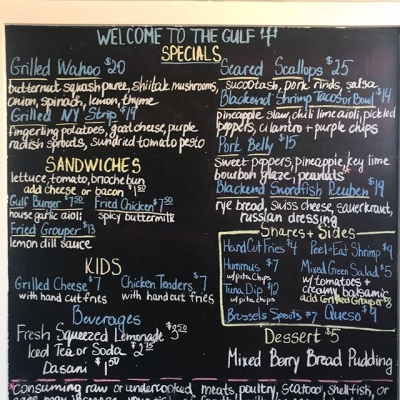 WELCOME TO THE GULF
SPECIALS
Grilled Wahoo $20
butternut squash puree, shiitak mushrooms,
onion, spinach, lemon, thyme
Grilled NY Strip $19
fingerling potatoes, goat cheese, purple
radish sprouts, sundried tomato pesto
Seared Scallops $25
succotash, pork rinds, salsa
Blackened Shrimp Tacos or Bowl $14
pineapple slaw, chili lime aioli, pickled
peppers, cilantro + purple chips
Pork Belly $15
sweet peppers, pineapple, key lime
bourbon glaze, peanuts*
Blackened Swordfish Reuben $19
rye bread, swiss cheese, sauerkraut,
russian dressing
SANDWICHES
lettuce, tomato, brioche bun
add cheese or bacon $1.50
Gulf Burger $7.50
house garlic aioli
Fried Chicken $7.50
spicy buttermilk
Fried Grouper $13
lemon dill sauce
KIDS
Grilled Cheese $7
with hand cut fries
Chicken Tenders $7
with hand cut fries
Beverages
Fresh Squeezed Lemonade $3.50
Iced Tea or Soda $2.75
Dasani $1.50
Shares + Sides
Hand Cut Fries $4
Peel + Eat Shrimp $9
Hummus $7
w/ pita chips
Mixed Green Salad $5
w/ tomatoes +
creamy balsamic
add Grilled Grouper
Tuna Dip $12
w/ pita chips
Brussels Sprouts $7
Queso $9
Dessert $5
Mixed Berry Bread Pudding
*Consuming raw or undercooked meats, poultry, seafood, shellfish, or
eggs may increase your risk of